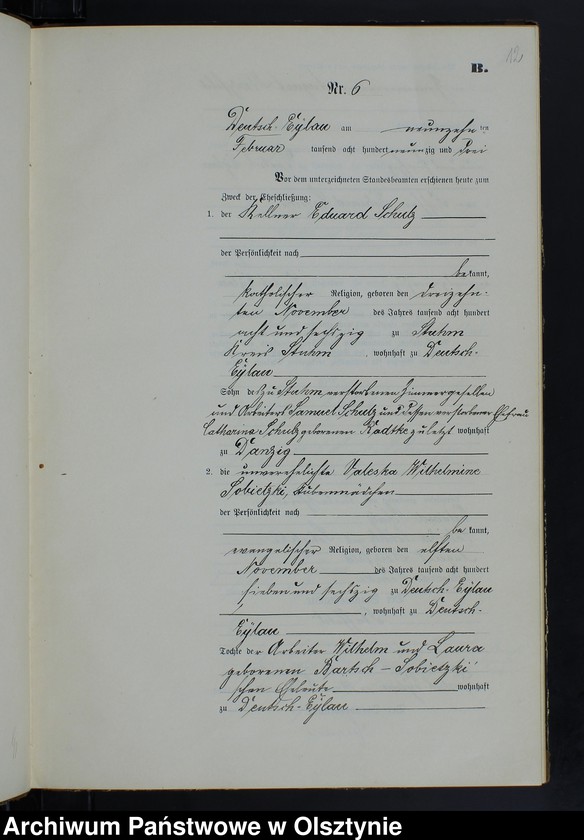 B.
12
Nr. 6
Deutsch-Eylau am neunzehnten
Februar tausend acht hundert neunzig und drei
Vor dem unterzeichneten Standesbeamten erschienen heute zum
Zweck der Eheschließung:
1. der Kellner Eduard Schulz
der Persönlichkeit nach
bekannt,
katholischer Religion, geboren den dreizehn-
ten November des Jahres tausend acht hundert
acht und sechszig zu Stuhm
Kreis Stuhm, wohnhaft zu Deutsch-
Eylau
Sohn des zu Stuhm verstorbenen Zimmergesellen
und Arbeiters Samuel Schulz und dessen verstorbener Ehefrau
Catharina Schulz geborenen Radtke zuletzt wohnhaft
zu Danzig
2. die unverehelichte Valeska Wilhelmine
Sobietzki, Stubenmädchen
der Persönlichkeit nach
bekannt,
evangelischer Religion, geboren den elften
November des Jahres tausend acht hundert
sieben und sechszig zu Deutsch-Eylau
, wohnhaft zu Deutsch-
Eylau
Tochter der Arbeiter Wilhelm und Laura
geborenen Bartsch - Sobietzki
schen Eheleute wohnhaft
zu Deutsch-Eylau
Archiwum Państwowe w Olsztynie